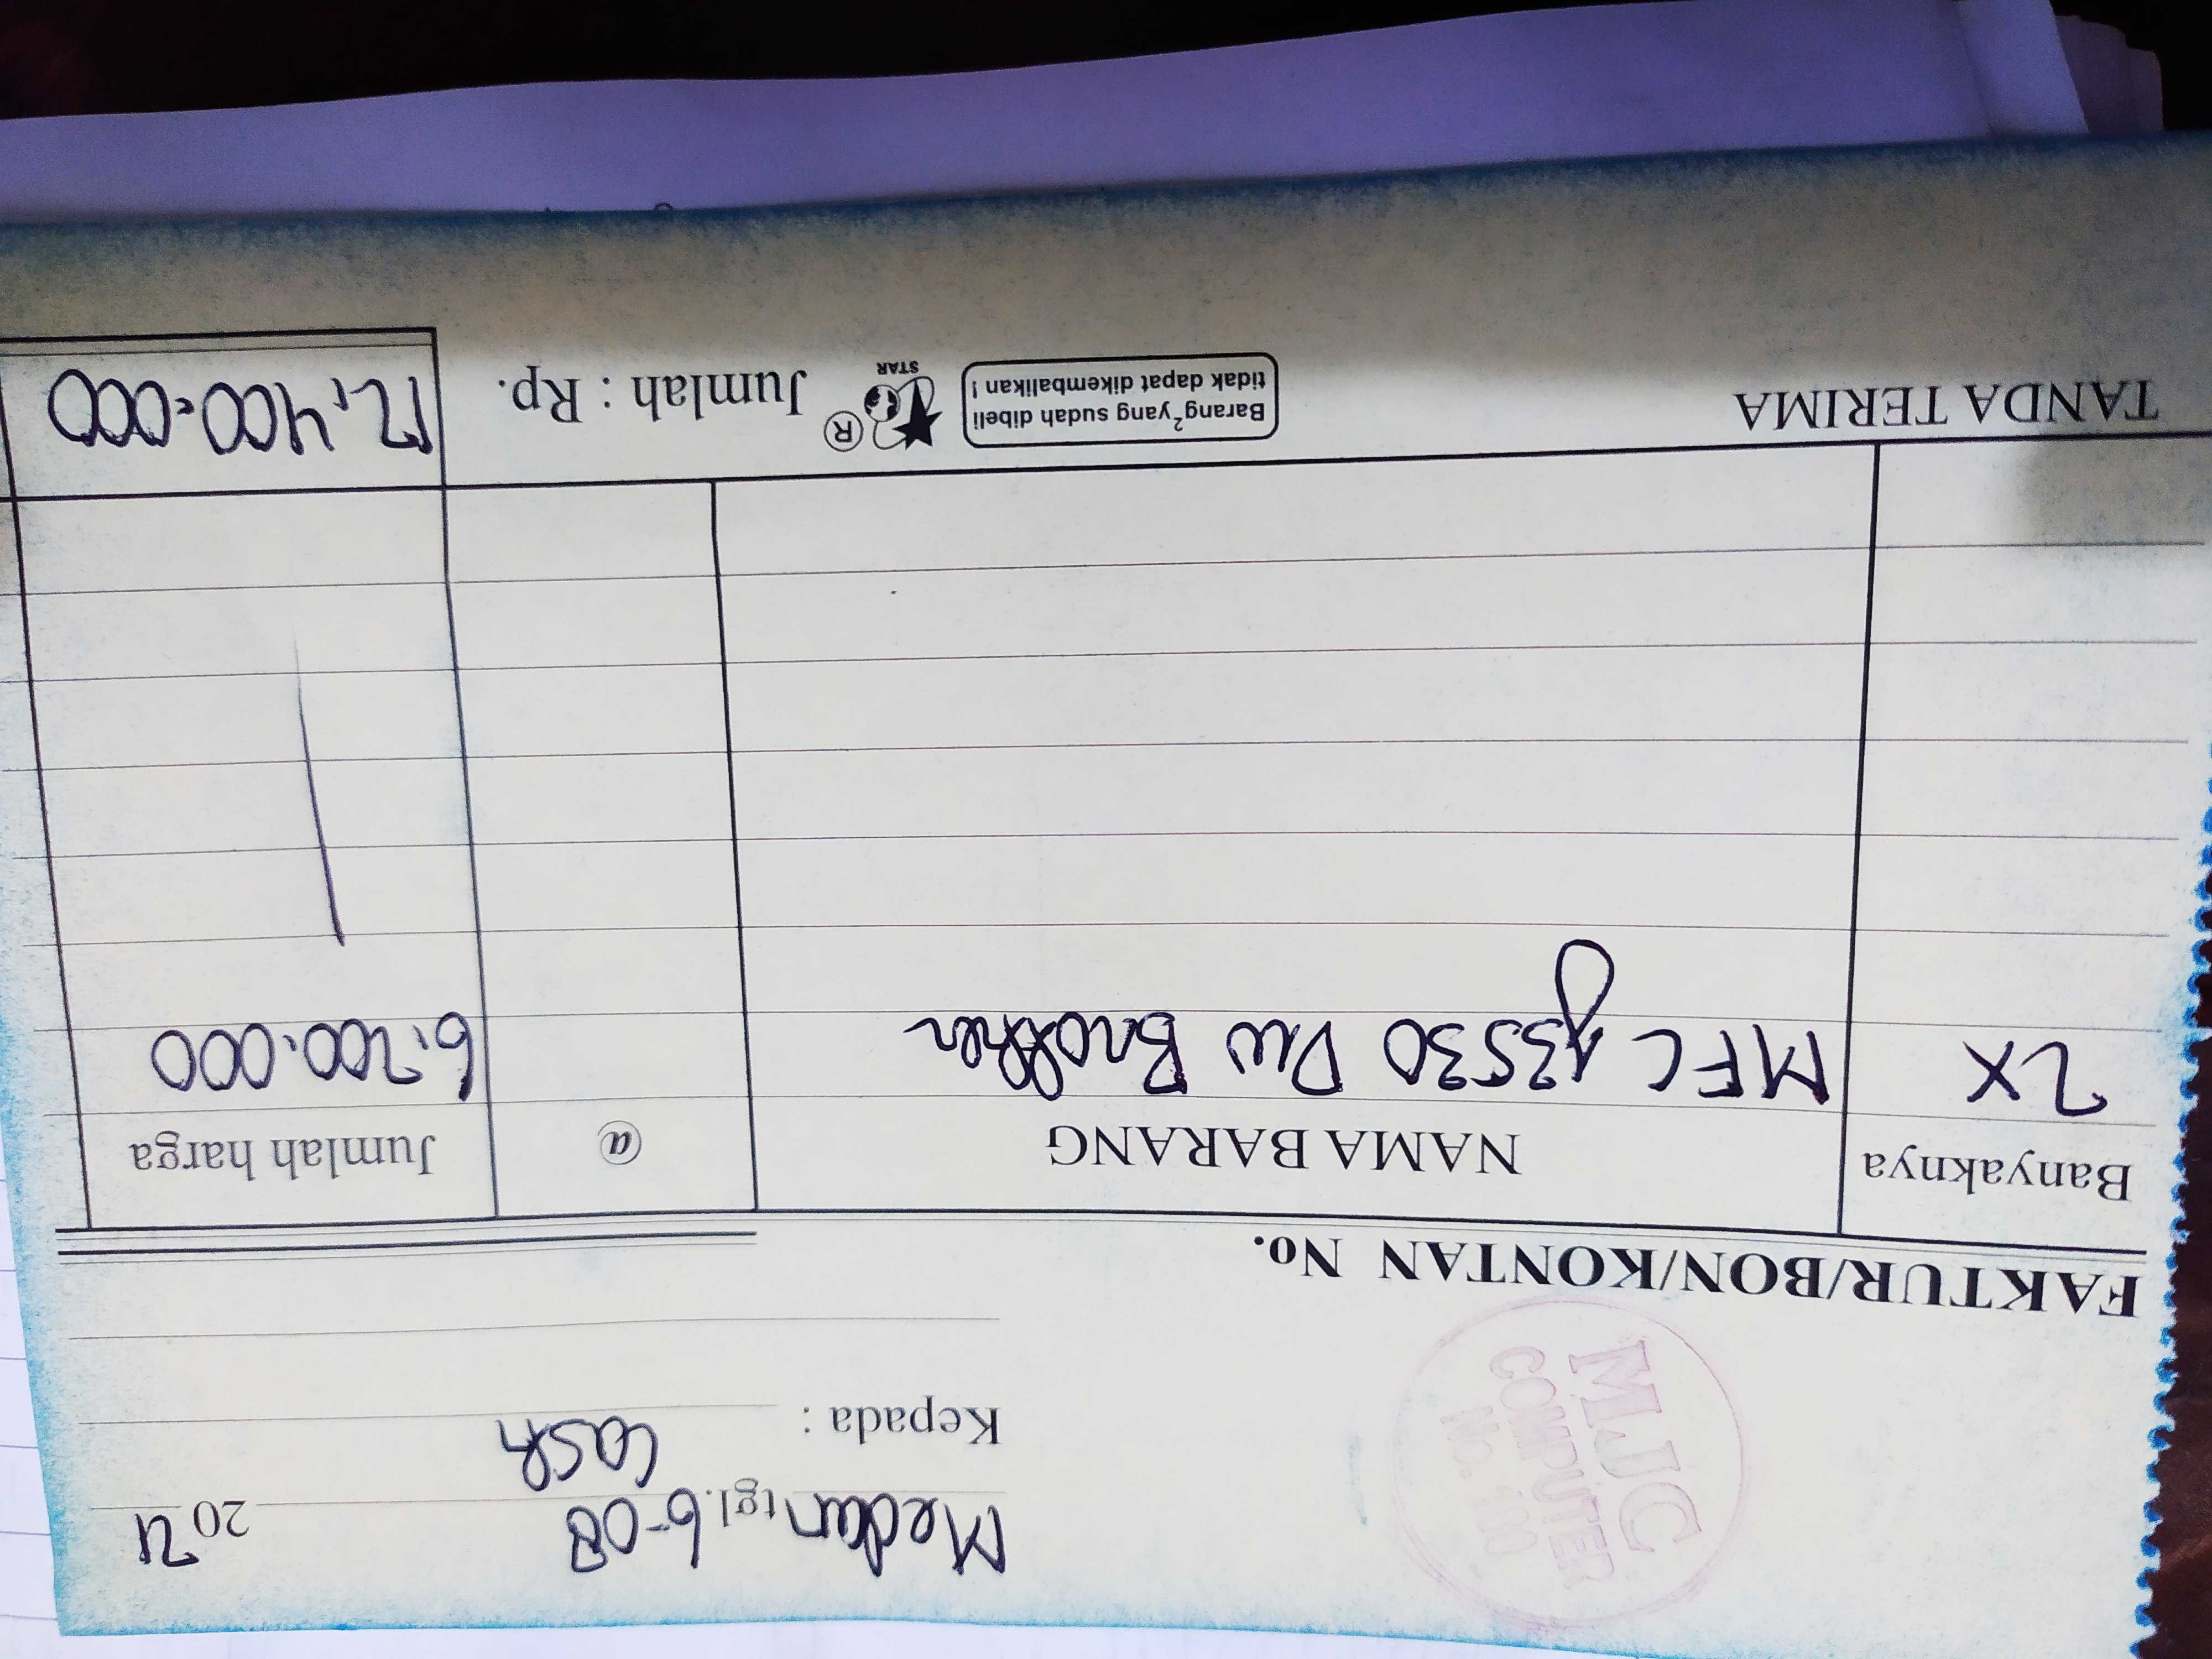 MJC
COMPUTER
No.
Medan tgl. 6-08 2021
Kepada : Cash
FAKTUR/BON/KONTAN No.
Banyaknya NAMA BARANG @ Jumlah harga
2X MFC J3530 DW Brother 6.200.000
TANDA TERIMA
Barang² yang sudah dibeli
tidak dapat dikembalikan !
®
STAR
Jumlah : Rp. 12.400.000